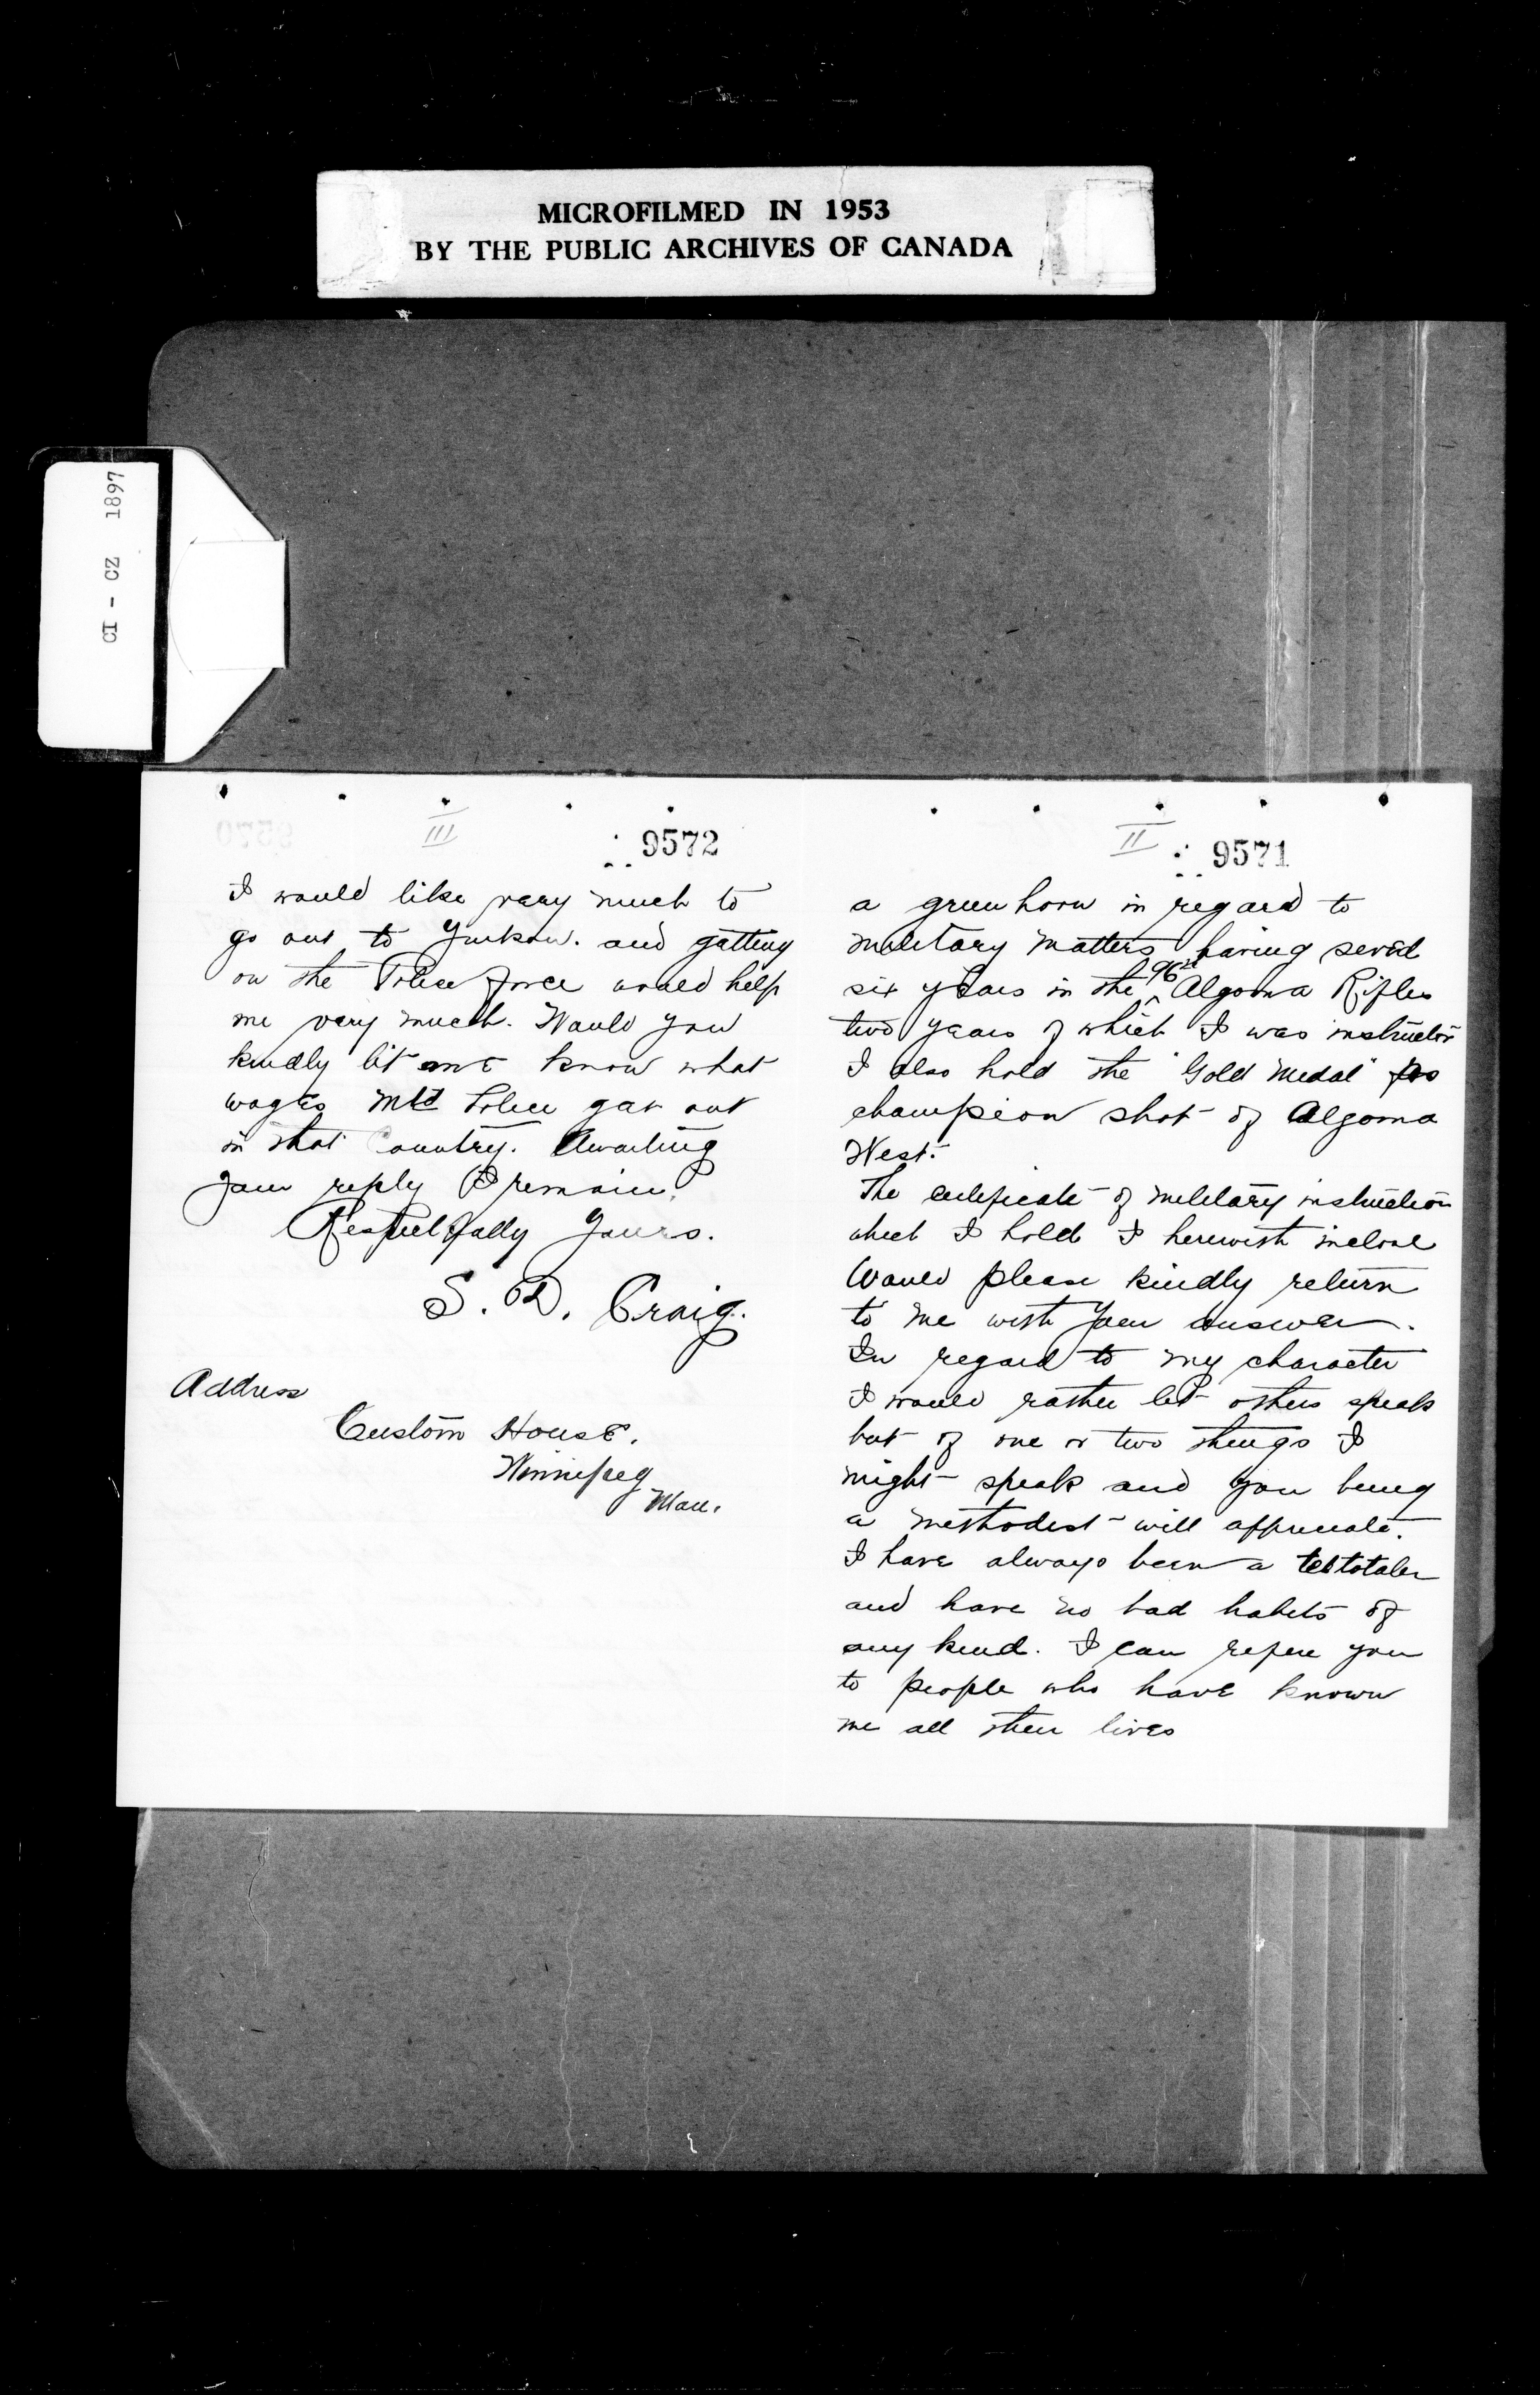 MICROFILMED IN 1953
BY THE PUBLIC ARCHIVES OF CANADA
CI - CZ 1897
III
9572
I would like very much to
go out to Yuckon. and getting
on the Police force would help
me very much. Would you
kindly let me know what
wages Mtd Police get out
in that Country. Awaiting
your reply I remain.
Respectfully Yours.
S. D. Craig.
Address
Custom House.
Winnipeg
Man.
II
9571
a green horn in regard to
military matters having served
six years in the 96th Algoma Rifles
two years of which I was instructor
I also hold the "Gold Medal" for
champion shot of Algoma
West.
The certificate of military instruction
which I hold I herewith inclose
Would please kindly return
to me with your answer.
In regard to my character
I would rather let others speak
but of one or two things I
might speak and you being
a methodist will appreciate.
I have always been a teetotaler
and have no bad habits of
any kind. I can refere you
to people who have known
me all their lives